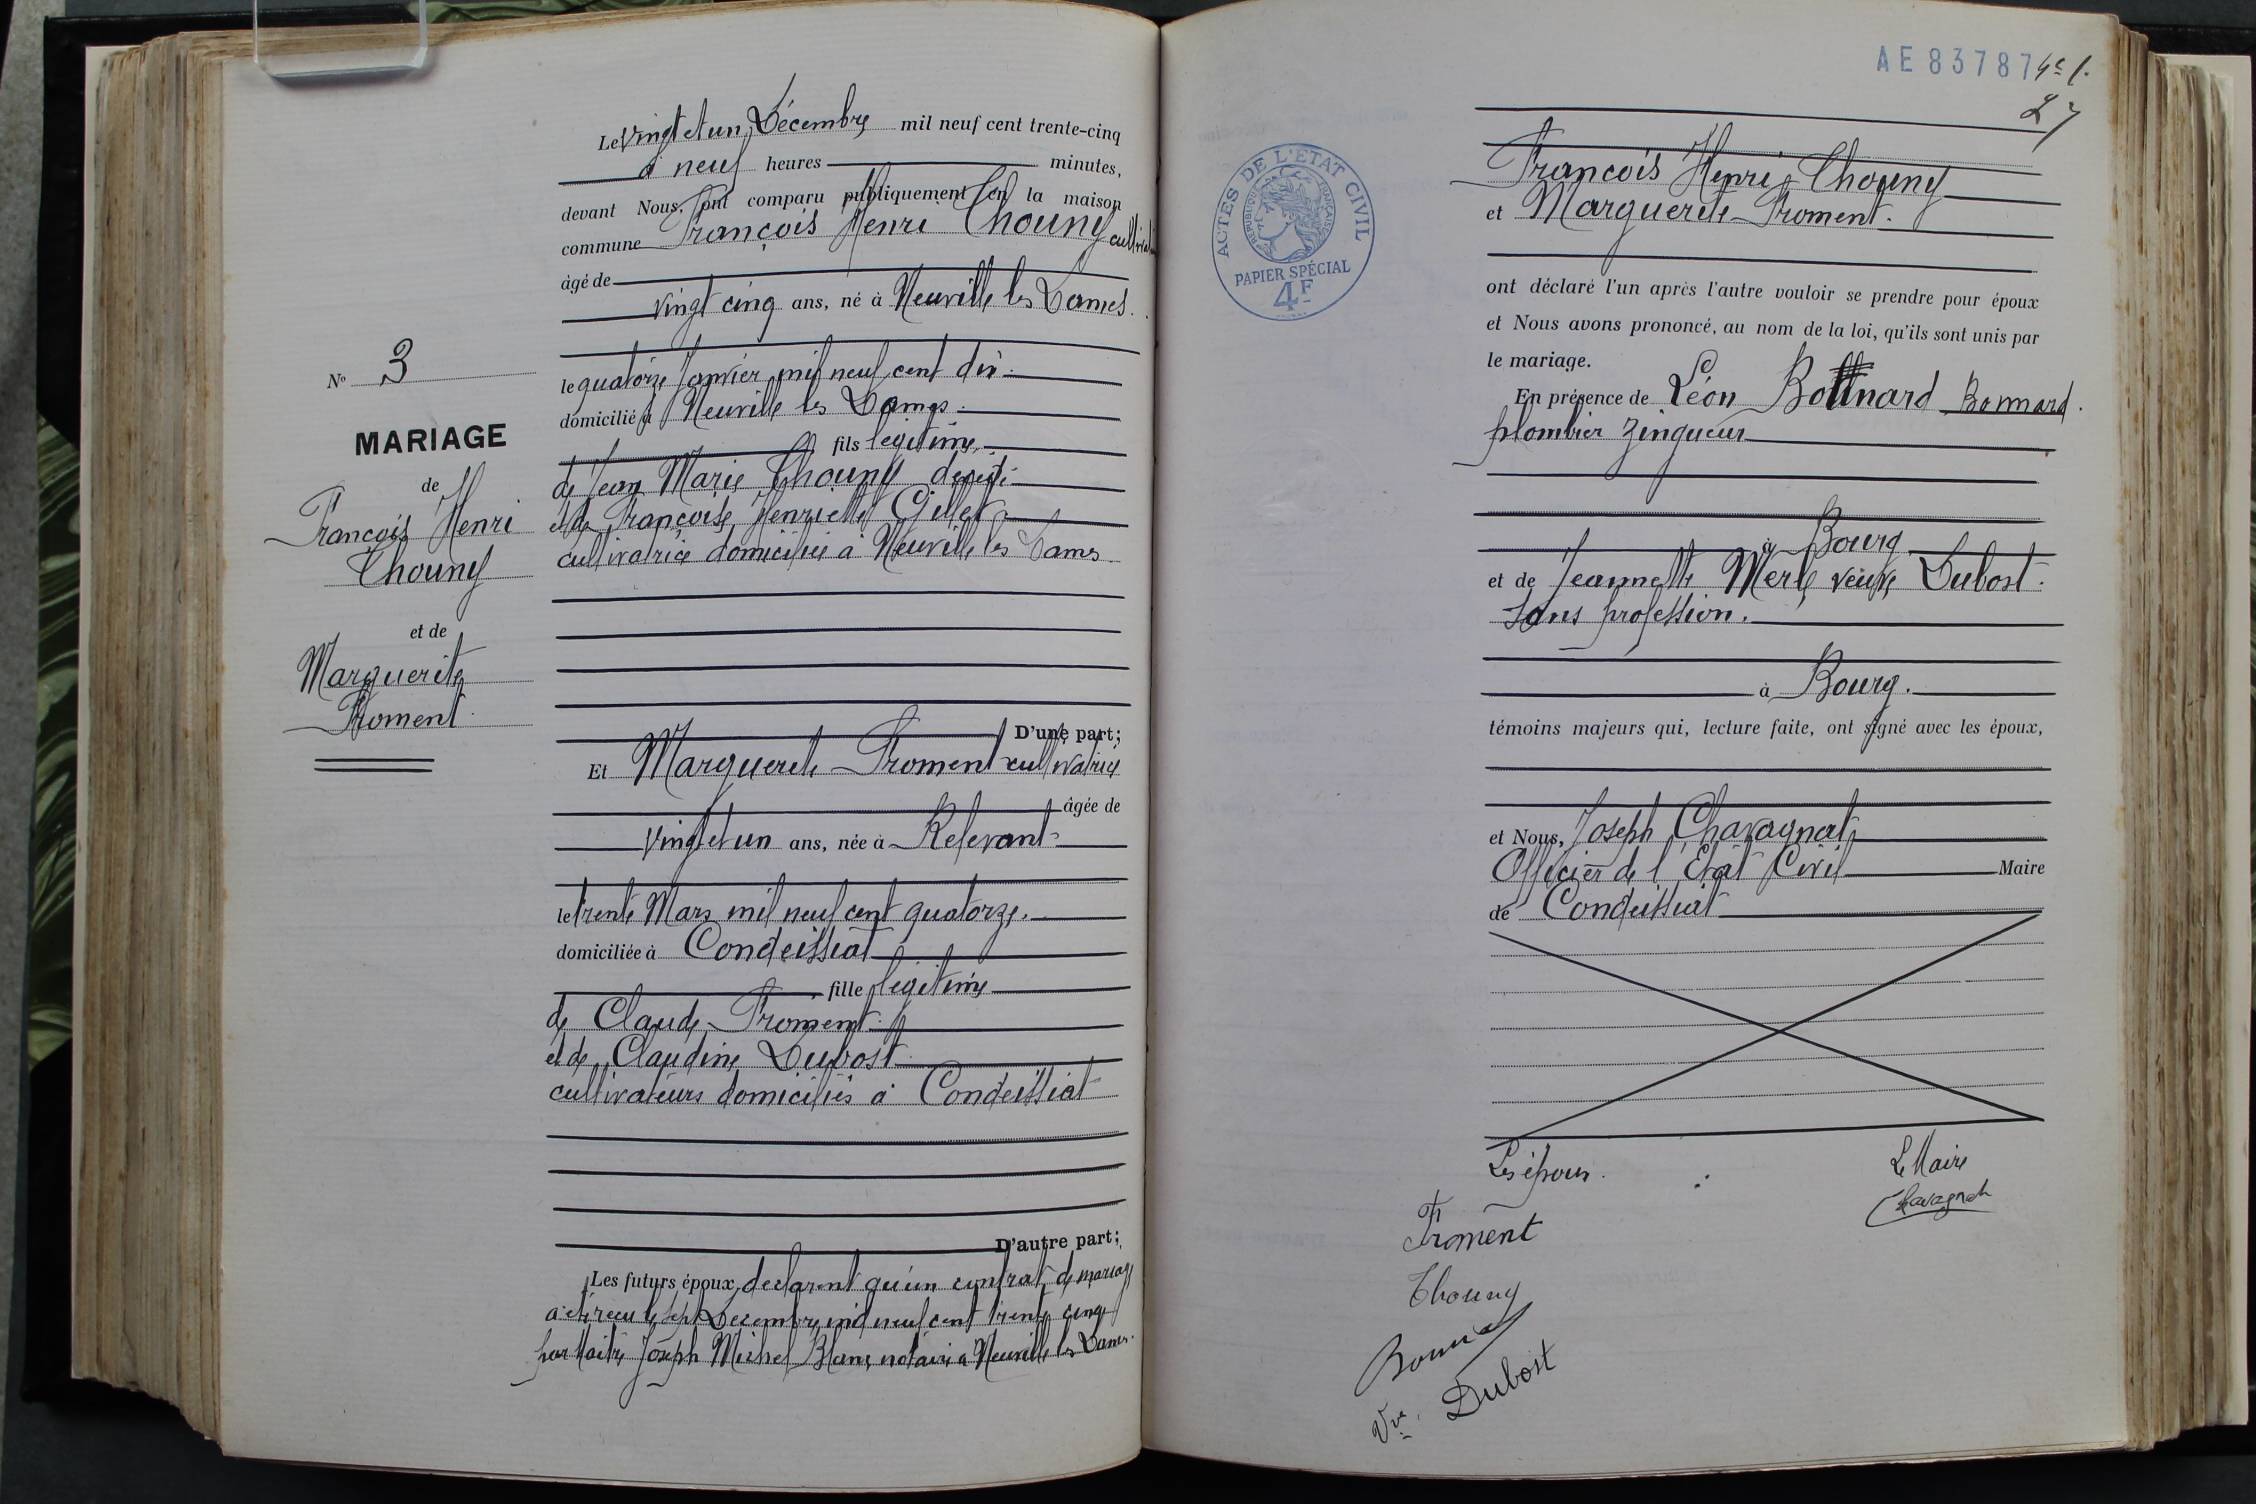 Le vingt et un Décembre mil neuf cent trente-cinq
à neuf heures minutes,
devant Nous, ont comparu publiquement en la maison
commune François Henri Thouny cultivateur
âgé de
vingt cinq ans, né à Neuville les Dames.
le quatorze Janvier mil neuf cent dix
domicilié à Neuville les Dames
fils légitime
de Jean Marie Thouny décédé
et de Françoise Henriette Gillet
cultivatrice domiciliée à Neuville les Dames
N° 3
MARIAGE
de
François Henri
Thouny
et de
Marguerite
Froment
D'une part;
Et Marguerite Froment cultivatrice
âgée de
vingt et un ans, née à Relevant
le trente Mars mil neuf cent quatorze.
domiciliée à Condeissiat
fille légitime
de Claude Froment
et de Claudine Dubost
cultivateurs domiciliés à Condeissiat
D'autre part;
Les futurs époux déclarent qu'un contrat de mariage
a été reçu le sept Décembre mil neuf cent trente cinq
par Maître Joseph Michel Blanc notaire à Neuville les Dames.
AE 83787
ACTES DE L'ETAT CIVIL
REPUBLIQUE FRANÇAISE
PAPIER SPÉCIAL
4F
François Henri Thouny
et Marguerite Froment.
ont déclaré l'un après l'autre vouloir se prendre pour époux
et Nous avons prononcé, au nom de la loi, qu'ils sont unis par
le mariage.
En présence de Léon Bonnard.
plombier zingueur
à Bourg
et de Jeannette Merle veuve Dubost
sans profession.
à Bourg.
témoins majeurs qui, lecture faite, ont signé avec les époux,
et Nous, Joseph Chavagnat
Officier de l'Etat Civil Maire
de Condeissiat
Les époux. Le Maire
Chavagnat
Froment
Thouny
Bonnard
Vve Dubost